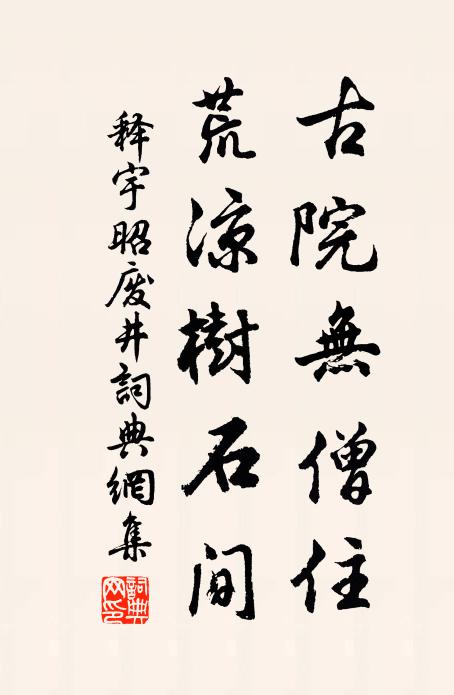 古院無僧住
荒涼樹石間
释宇昭废井詞典網集
詞典网印